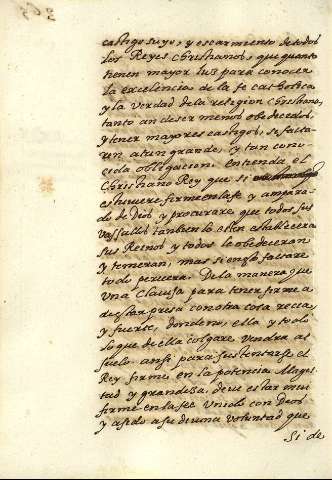 castigo suyo, y escarmiento de todos
los Reyes Christianos, que quanto
tienen mayor luz para conocer
la excelencia de la fe catholica
y la verdad de la religion christiana,
tanto an de ser menos obedecidos,
y tener mayores castigos, si faltan
un a tan grande, y tan cono-
cida obligacion. Entienda el
Christiano Rey que si
estuviere firme en la fe y ampara-
do de Dios, y procurare que todos sus
vassallos tambien lo esten establecera
sus Reinos y todos le obedeceran
y temeran, mas si en esto faltare
todo perecera. De la manera que
una Clausa para tener firme a
de estar presa con otra cosa recia,
y fuerte, donde no, ella y todo
lo que de ella colgare vendra al
suelo ansi para sustentarse el
Rey firme en la potencia Mages-
tad y grandeza, deve estar mui
firme en la fee unido con Dios
y asido a su divina voluntad que
Si de